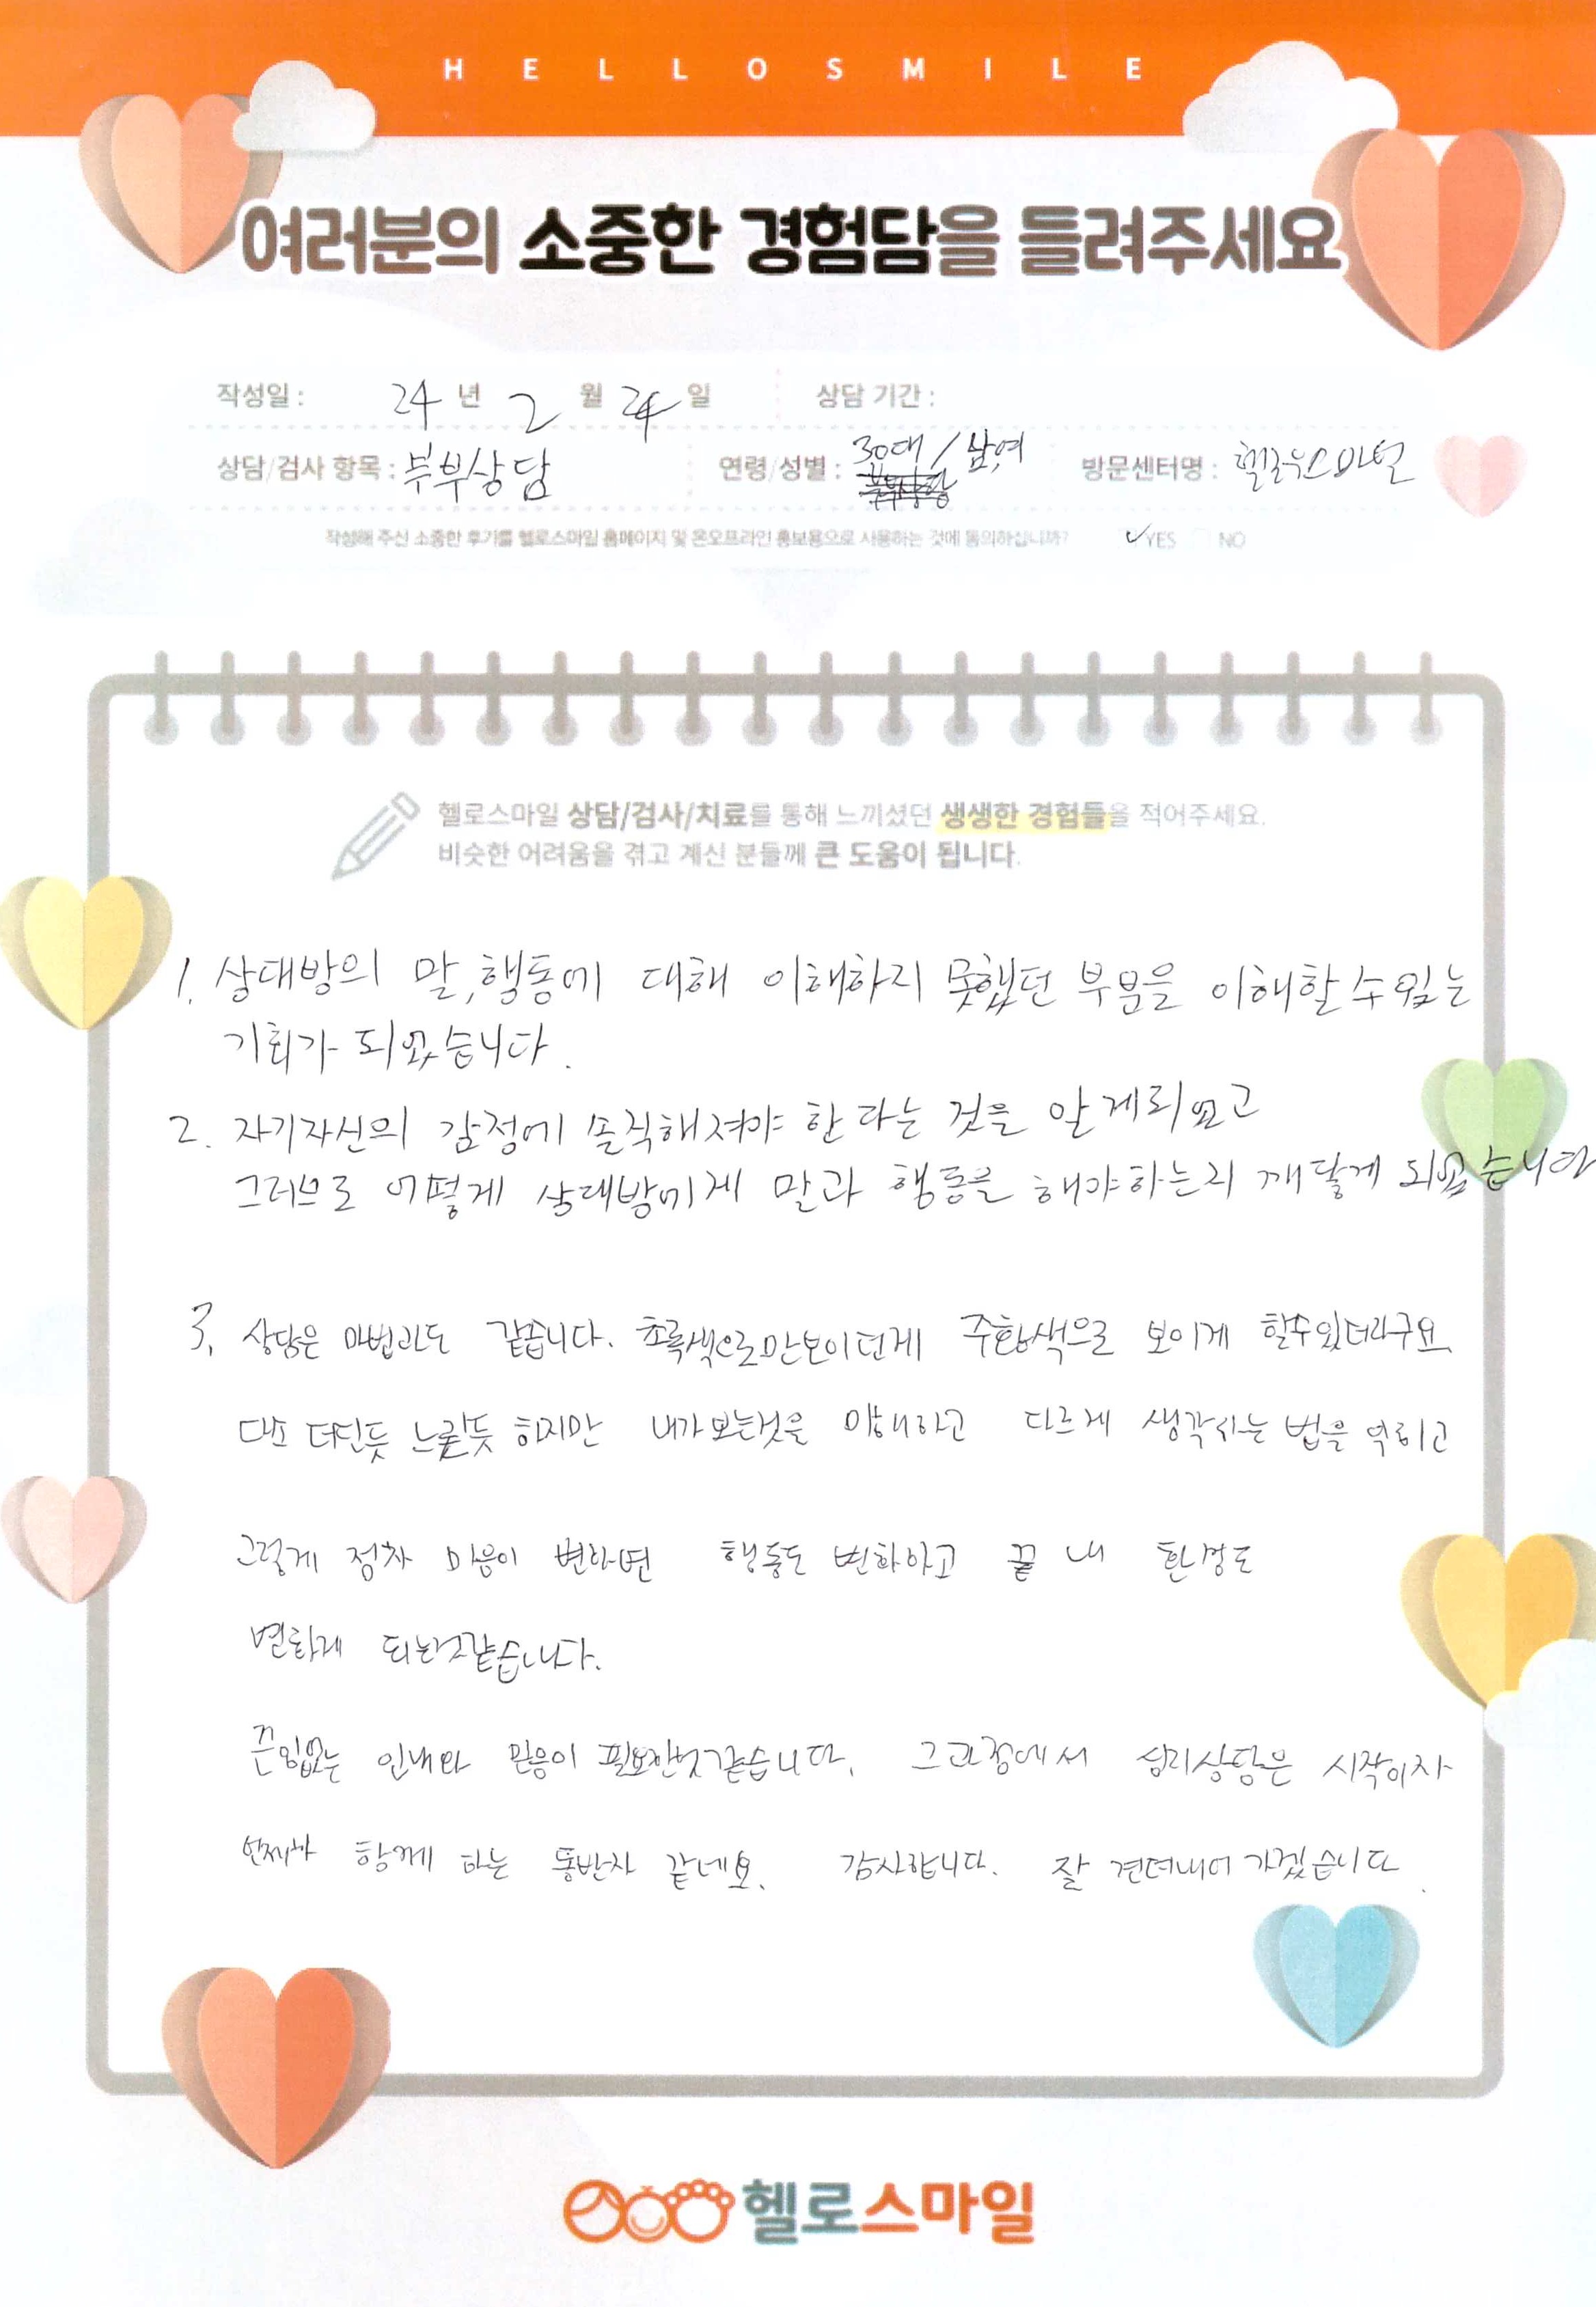 HELLOSMILE
여러분의 소중한 경험담을 들려주세요
작성일 : 24 년 2 월 24 일 상담 기간 :
상담/검사 항목 : 부부상담 연령/성별 : 30대 / 남,여 방문센터명 : 헬로우스마일
작성해 주신 소중한 후기를 헬로스마일 홈페이지 및 온오프라인 홍보용으로 사용하는 것에 동의하십니까? ✓YES NO
헬로스마일 상담/검사/치료를 통해 느끼셨던 생생한 경험들을 적어주세요.
비슷한 어려움을 겪고 계신 분들께 큰 도움이 됩니다.
1. 상대방의 말,행동에 대해 이해하지 못했던 부분을 이해할 수 있는
기회가 되었습니다.
2. 자기자신의 감정에 솔직해져야 한다는 것을 알게되었고
그러므로 어떻게 상대방에게 말과 행동을 해야하는지 깨닿게 되었습니다
3. 상담은 마법과도 같습니다. 초록색으로만보이던게 주황색으로 보이게 할수있더라구요
다소 더딘듯 느릴듯 하지만 내가보는것을 이해하고 다르게 생각하는 법을 익히고
그렇게 점차 마음이 변하면 행동도 변화하고 끝내 환경도
변하게 되는것같습니다.
끈임없는 인내와 믿음이 필요한것같습니다. 그과정에서 심리상담은 시작이자
언제나 함께 하는 동반자 같네요. 감사합니다. 잘 견뎌내어 가겠습니다.
헬로스마일